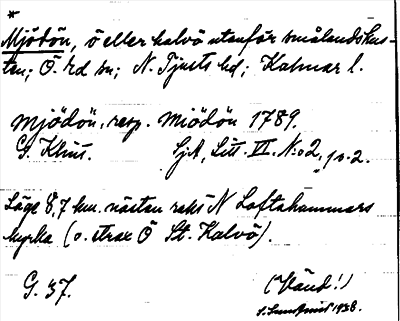 *
Mjödön, ö eller halvö utanför smålandskus-
ten; Ö. rd sn; N. Tjusts hd; Kalmar l.
Mjödön, resp. Miödön 1789.
G. Klint. SjA, Litt. VI. N:o 2, p. 2.
Läge 8,7 km. nästan rakt N Loftahammars
kyrka (o. strax Ö St. Kalvö).
G. 37. (Vänd!)
1938.